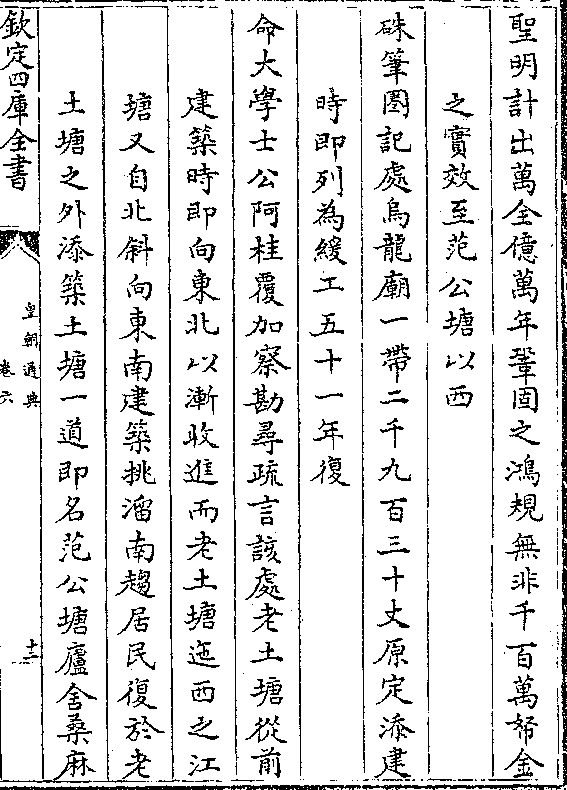 聖明計出萬全億萬年鞏固之鴻規無非千百萬帑金
之實效至范公塘以西
硃筆圏記處烏龍廟一帶二千九百三十丈原定添建
時即列為緩工五十一年復
命大學士公阿桂覆加察勘尋疏言該處老土塘從前
建築時即向東北以漸收進而老土塘迤西之江
塘又自北斜向東南建築挑溜南趨居民復於老
土塘之外添築土塘一道即名范公塘廬舍桑麻
欽定四庫全書
皇朝通典
卷六
十二